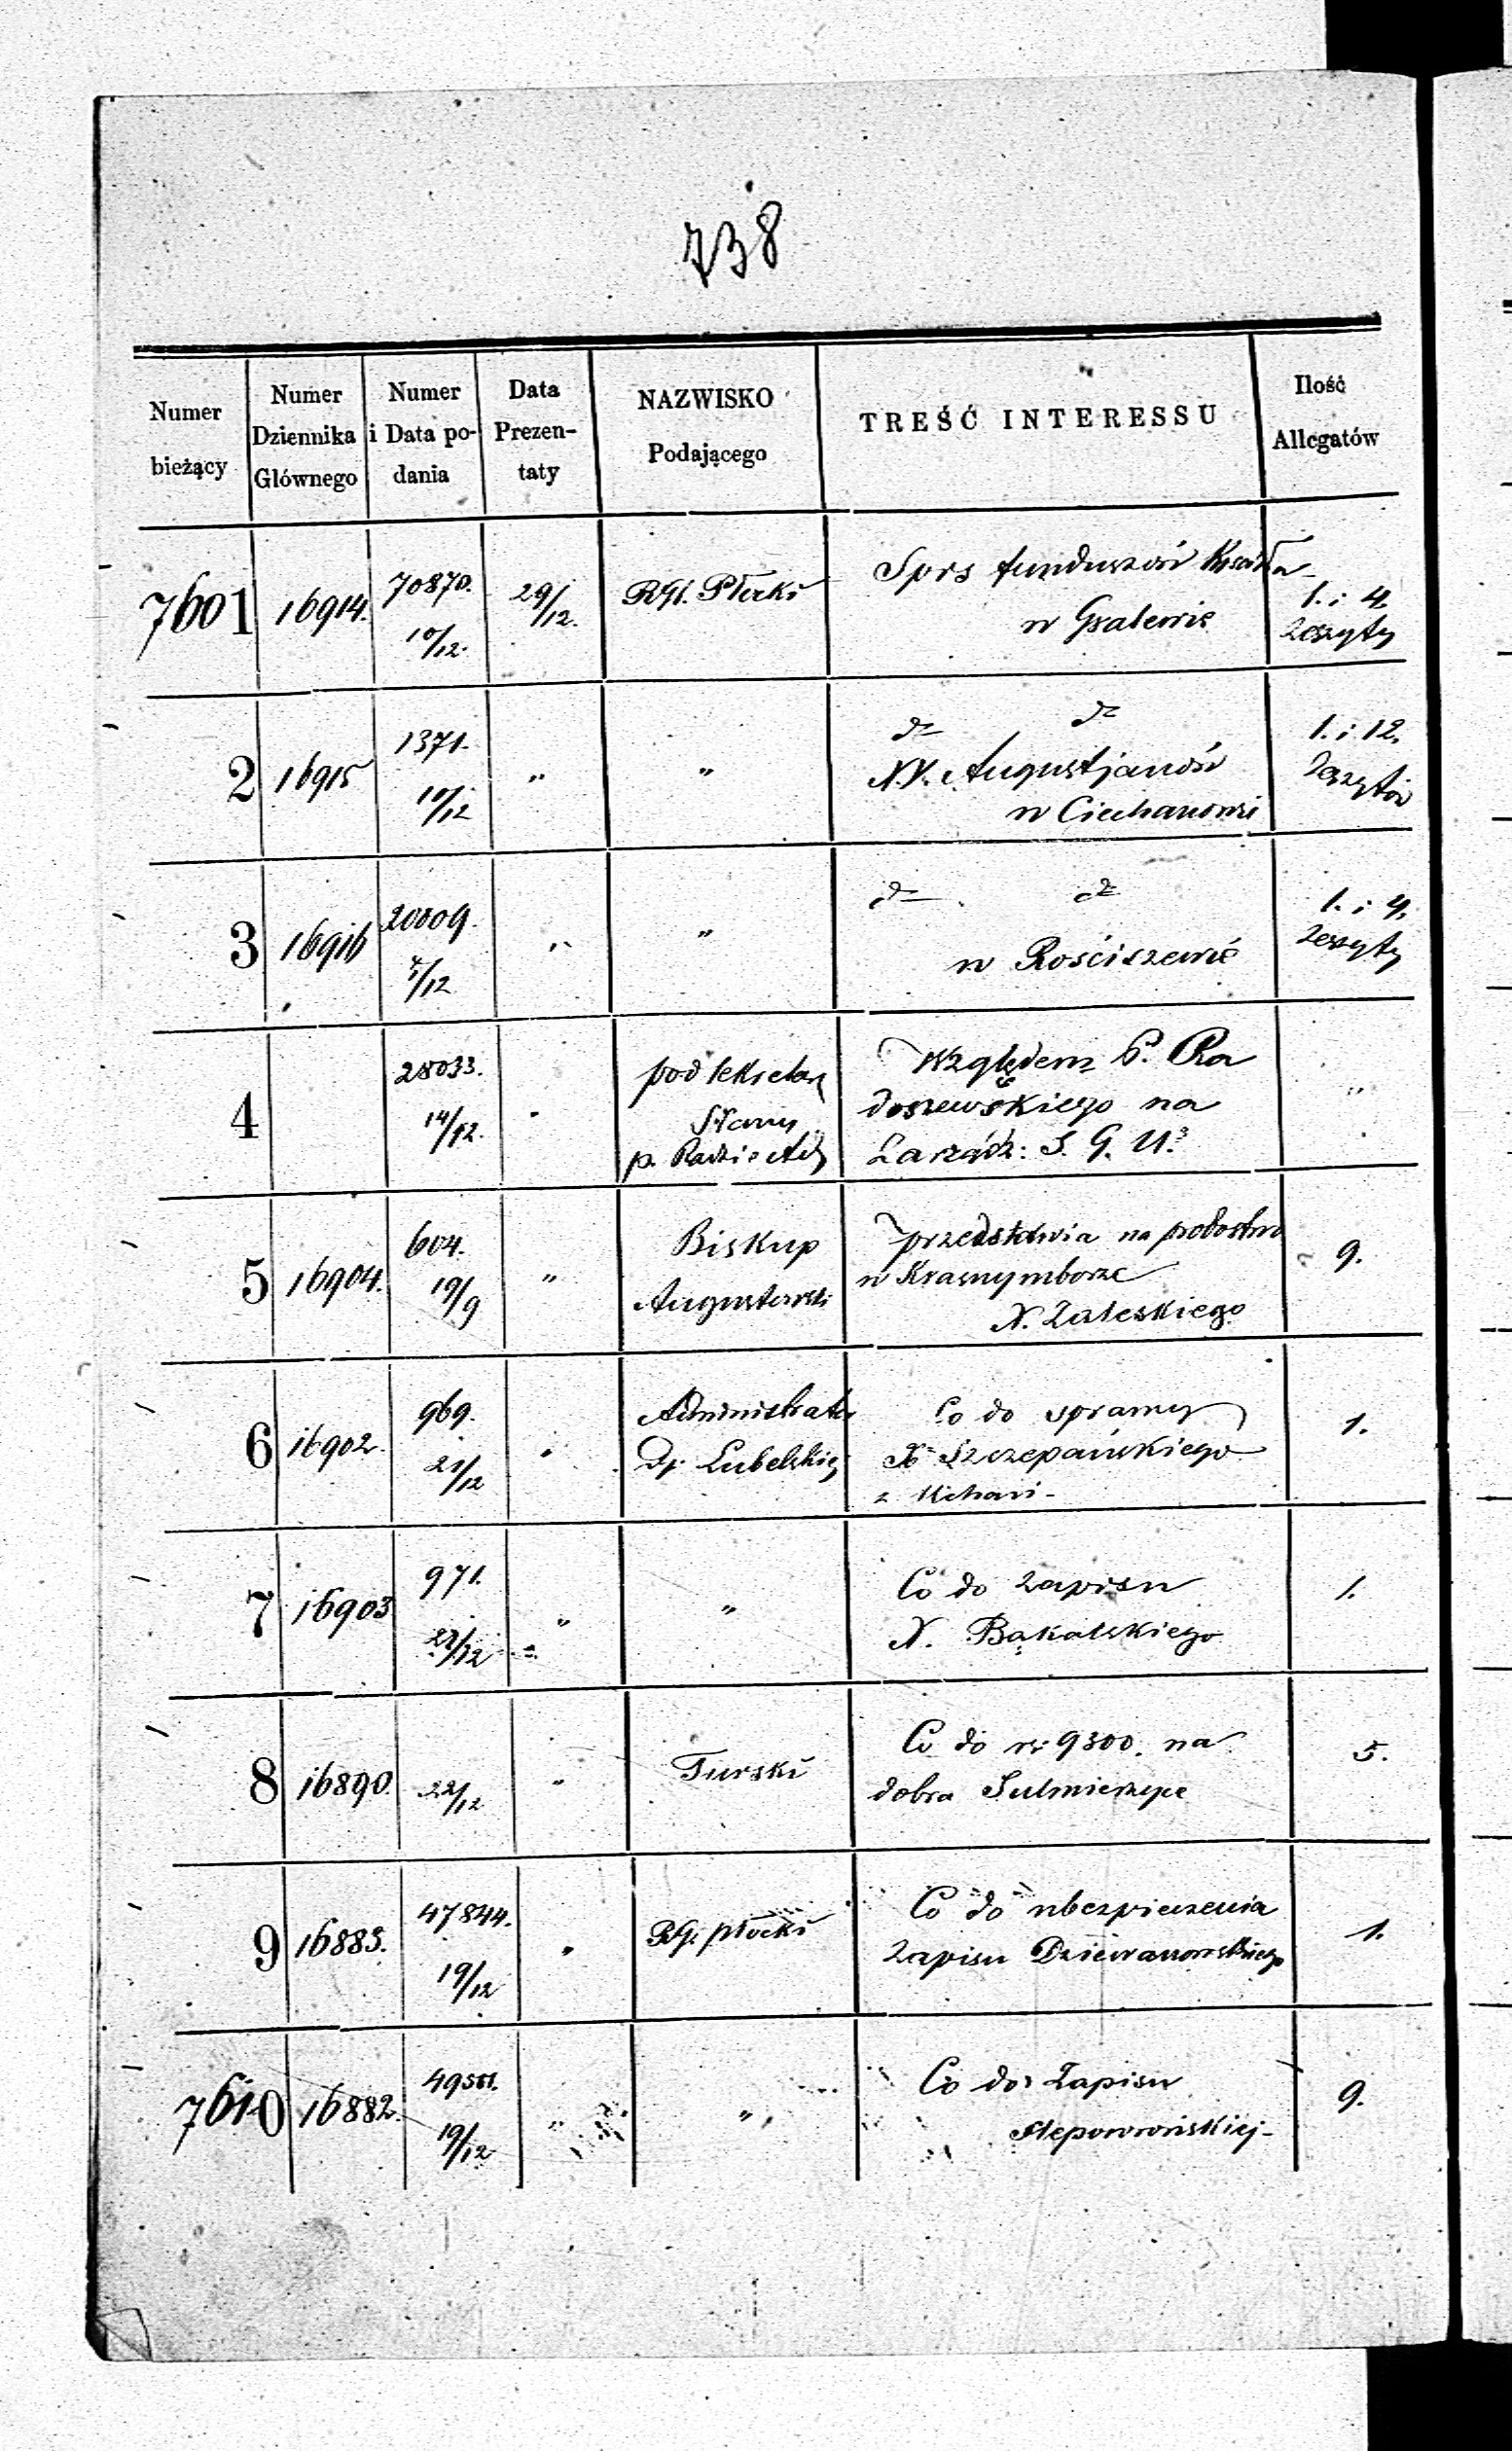 738
Numer bieżący
Numer Dziennika Głównego
Numer i Data po- dania
Data Prezen- taty
NAZWISKO Podającego
TREŚĆ INTERESSU
Ilość Allegatów
7601 16914. 70870. 29/12. RGł. Płocki Spis funduszów Kościoła 1. i 4.
10/12. w Gralewie Zeszyty
2 16915 1371. " " dto dto 1. i 12.
10/12 XX. Augustjanów Zeszytów
w Ciechanowie
3 16916 20809. " " dto dto 1. i 4.
7/12 w Rościszewie Zeszyty
4 28033. " pod Sekretarz Względem P. Ra "
14/12. Stanu doszewskiego na
p. Zarządz: S. G. U.
5 16904. 604. " Biskup przedstawia na probostwo 9.
19/9 Augustowski w Krasnymborze
X. Zaleskiego
6 16902. 969. " Administrator Co do sprawy 1.
21/12 Dj. Lubelskiej X Szczepańskiego
z
7 16903 971. " " Co do zapisu 1.
22/12 X. Bąkalskiego
8 16890. 22/12 " Turski Co do rs 9300. na 5.
dobra Sulmierzyce
9 16883. 47844. " RG. płocki Co do ubezpieczenia 1.
19/12 Zapisu Dziewanowskiego
7610 16882. " " Co do Zapisu 9.
19/12 Slepowrońskiej